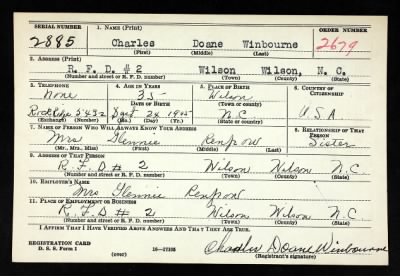 SERIAL NUMBER 1. NAME (Print) ORDER NUMBER
2885 Charles Doane Winbourne 2679
(First) (Middle) (Last)
2. ADDRESS (Print)
R. F. D. # 2 Wilson Wilson, N. C.
(Number and street or R. F. D. number) (Town) (County) (State)
3. TELEPHONE 4. AGE IN YEARS 5. PLACE OF BIRTH 6. COUNTRY OF CITIZENSHIP
None 35 Wilson
DATE OF BIRTH (Town or county)
5432 24 1905 N.C U.S.A
(Exchange) (Number) (Mo.) (Day) (Yr.) (State or country)
7. NAME OF PERSON WHO WILL ALWAYS KNOW YOUR ADDRESS 8. RELATIONSHIP OF THAT PERSON
Mrs Glennie Renfrow Sister
(Mr., Mrs., Miss) (First) (Middle) (Last)
9. ADDRESS OF THAT PERSON
R. F. D # 2 Wilson Wilson N.C.
(Number and street or R. F. D. number) (Town) (County) (State)
10. EMPLOYER'S NAME
Mrs Glennie Renfrow
11. PLACE OF EMPLOYMENT OR BUSINESS
R. F. D # 2 Wilson Wilson N.C.
(Number and street or R. F. D. number) (Town) (County) (State)
I AFFIRM THAT I HAVE VERIFIED ABOVE ANSWERS AND THAT THEY ARE TRUE.
REGISTRATION CARD
D. S. S. Form 1 (over) 16—17105 Charles Doane Winbourne
(Registrant's signature)